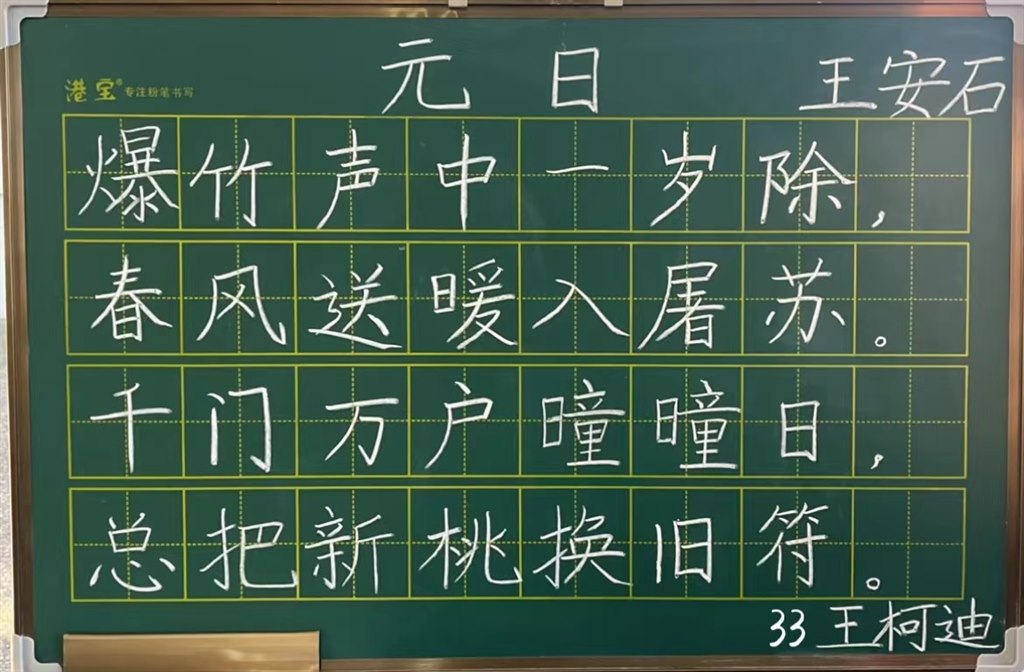 元日 王安石
港宝® 专注粉笔书写
爆竹声中一岁除，
春风送暖入屠苏。
千门万户曈曈日，
总把新桃换旧符。
33 王柯迪